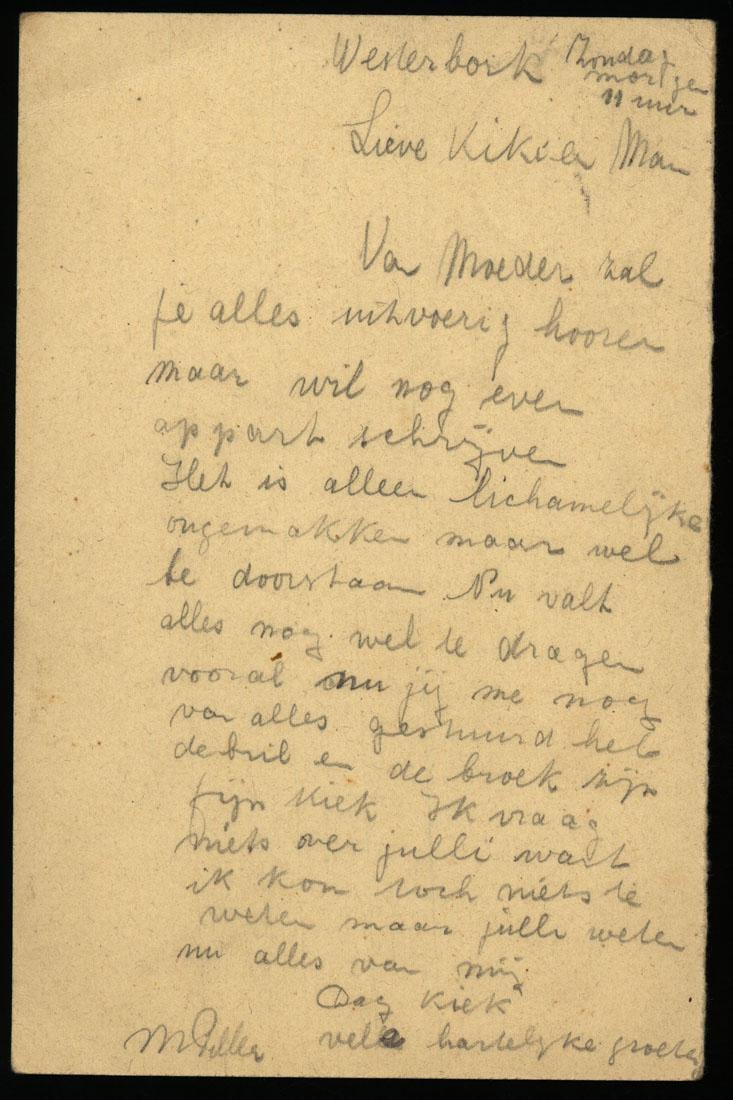 Westerbork Zondag
morgen
11 uur
Lieve Kiki en Man
Van Moeder zal
je alles uitvoerig hooren
maar wil nog even
appart schrijven
Het is alleen lichamelijke
ongemakken maar wel
te doorstaan Nu valt
alles nog wel te dragen
vooral nu jij me nog
van alles gestuurd het
de bril en de broek zijn
fijn Kiek Ik vraag
niets over julli want
ik kom toch niets te
weten maar julli weten
nu alles van mij
Dag Kiek
vele hartelijke groeten